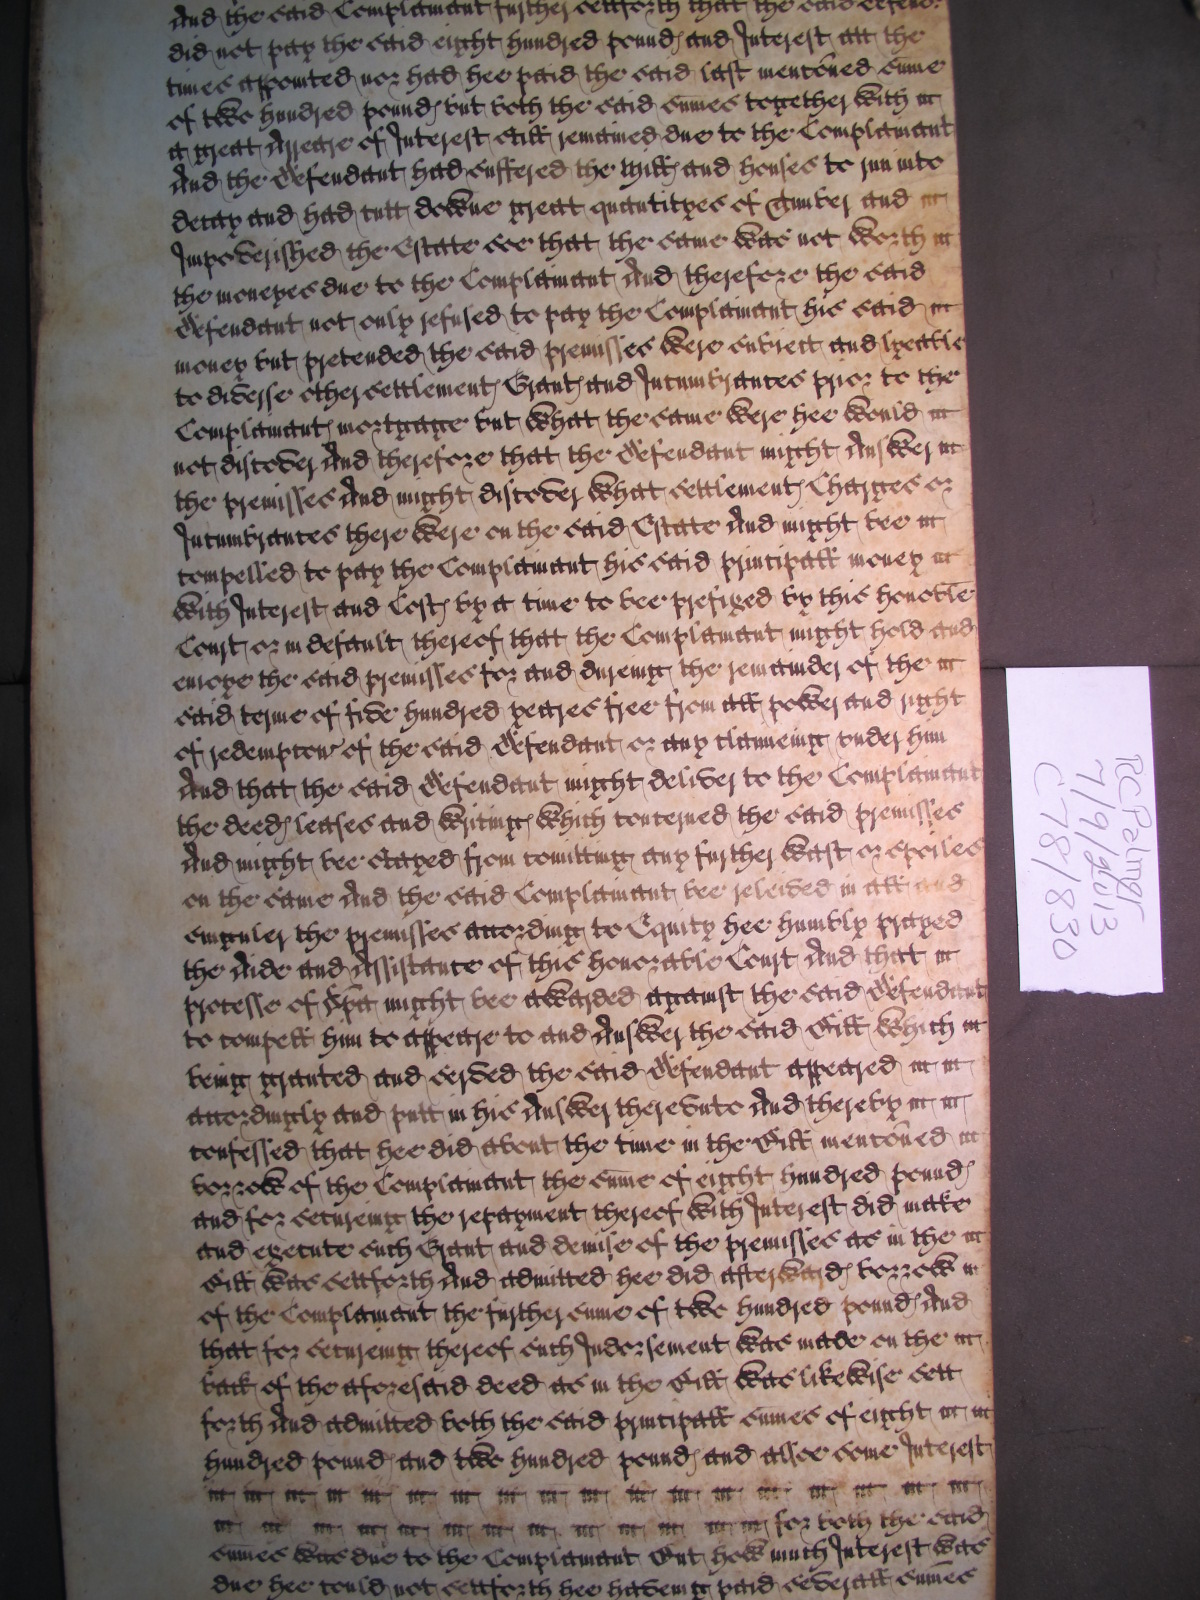 And the said Complainant further settforth that the said defend:
did not pay the said eight hundred pound and Interest att the
times appointed nor had hee paid the said last mentoned sume
of two hundred pound but both the said sumes together with
a great Arreare of Interest still remained due to the Complainant
And the defendant had suffered the mill and houses to run into
decay and had cutt downe great quantityes of timber and
Impoverished the Estate soe that the same was not worth
the moneyes due to the Complainant And therefore the said
defendant not only refused to pay the Complainant his said
money but pretended the said premisses were subiect and lyeable
to diverse other settlement Grant and Incumbrances prior to the
Complainant mortgage but what the same were hee would
not discover And therefore that the defendant might Answer
the premisses And might discover what settlement Charges or
Incumbrances there were on the said Estate And might bee
compelled to pay the Complainant his said principall money
with Interest and Cost by a time to bee prefixed by this honoble
Court or in default thereof that the Complainant might hold and
enioye the said premisses for and dureing the remainder of the
said terme of five hundred yeares free from all power and right
of redempton of the said defendant or any claimeing under him
And that the said defendant might deliver to the Complainant
the deed leases and writing which concerned the said premisses
And might bee stayed from comitting any further wast or spoiles
on the same And the said Complainant bee releived in all and
singuler the premisses according to Equity hee humbly prayed
the Aide and Assistance of this honorable Court And that
processe of Spa might bee awarded against the said defendant
to compell him to appeare to and Answer the said Bill which
being granted and served the said defendant appeared
accordingly and putt in his Answer thereunto And thereby
confessed that hee did about the time in the Bill mentoned
borrow of the Complainant the sume of eight hundred pound
and for secureing the repayment thereof with Interest did make
and execute such Grant and demise of the premisses as in the
Bill was settforth And admitted hee did afterward borrow
of the Complainant the further sume of two hundred pound And
that for secureing thereof such Indorsement was made on the
back of the aforesaid deed as in the Bill was likewise sett
forth And admitted both the said principall sumes of eight
hundred pound and two hundred pound and alsoe some Interest
for both the said
sumes was due to the Complainant But how much Interest was
due hee could not settforth hee haveing paid severall sumes
RCPalmer
7/9/2013
C78/830